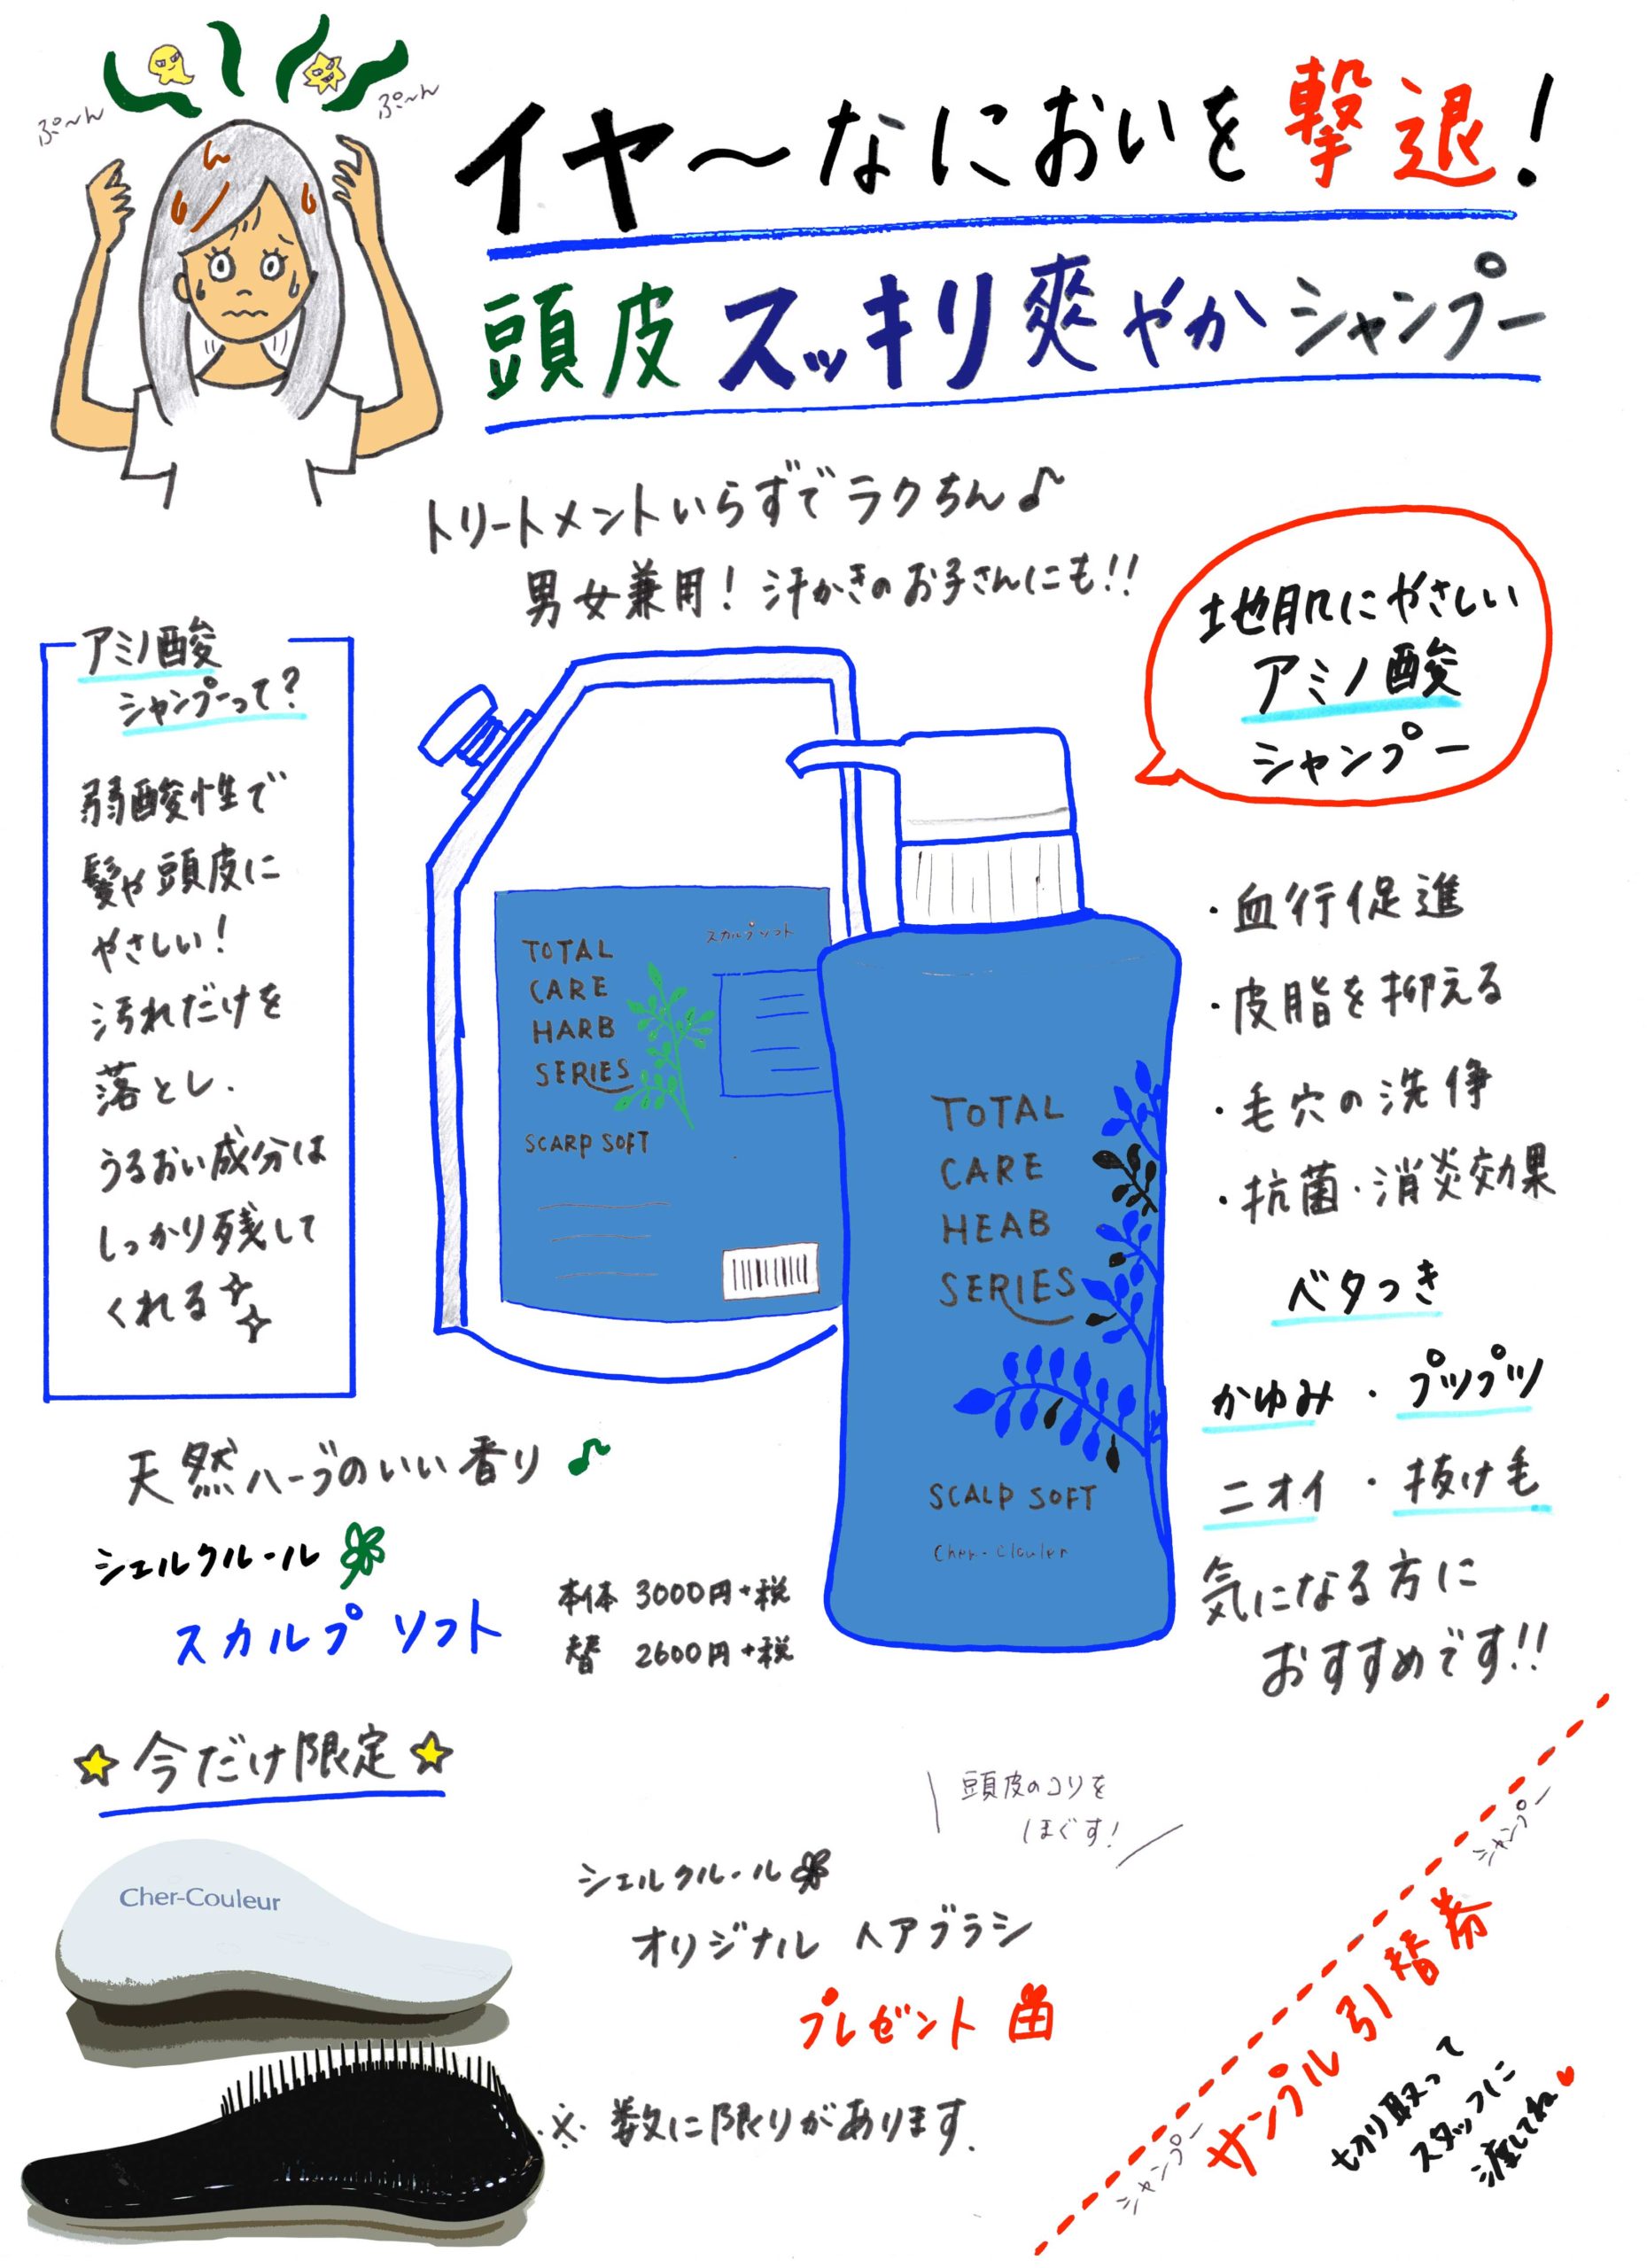 ぷ〜ん
ぷ〜ん
イヤ〜なにおいを撃退！
頭皮スッキリ爽やかシャンプー
トリートメントいらずでラクちん♪
男女兼用！汗かきのお子さんにも!!
地肌にやさしい
アミノ酸
シャンプー
アミノ酸
シャンプーって？
弱酸性で
髪や頭皮に
やさしい！
汚れだけを
落とし、
うるおい成分は
しっかり残して
くれる
スカルプソフト
TOTAL
CARE
HARB
SERIES
SCARP SOFT
TOTAL
CARE
HEAB
SERIES
SCALP SOFT
Cher-Clouler
・血行促進
・皮脂を抑える
・毛穴の洗浄
・抗菌・消炎効果
ベタつき
かゆみ・プツプツ
ニオイ・抜け毛
気になる方に
おすすめです!!
天然ハーブのいい香り♪
シェルクルール
スカルプソフト
本体 3000円+税
替 2600円+税
☆今だけ限定☆
Cher-Couleur
頭皮のコリを
ほぐす！
シェルクルール
オリジナル ヘアブラシ
プレゼント
※ 数に限りがあります。
シャンプー
シャンプー
サンプル引替券
切り取って
スタッフに
渡してね♥